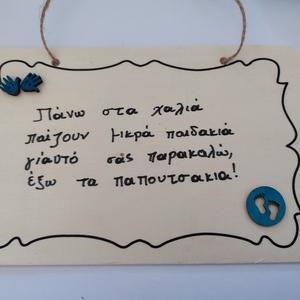 Πάνω στα χαλιά
παίζουν μικρά παιδακιά
γι'αυτό σάς παρακαλώ,
έξω τα παπουτσακια!